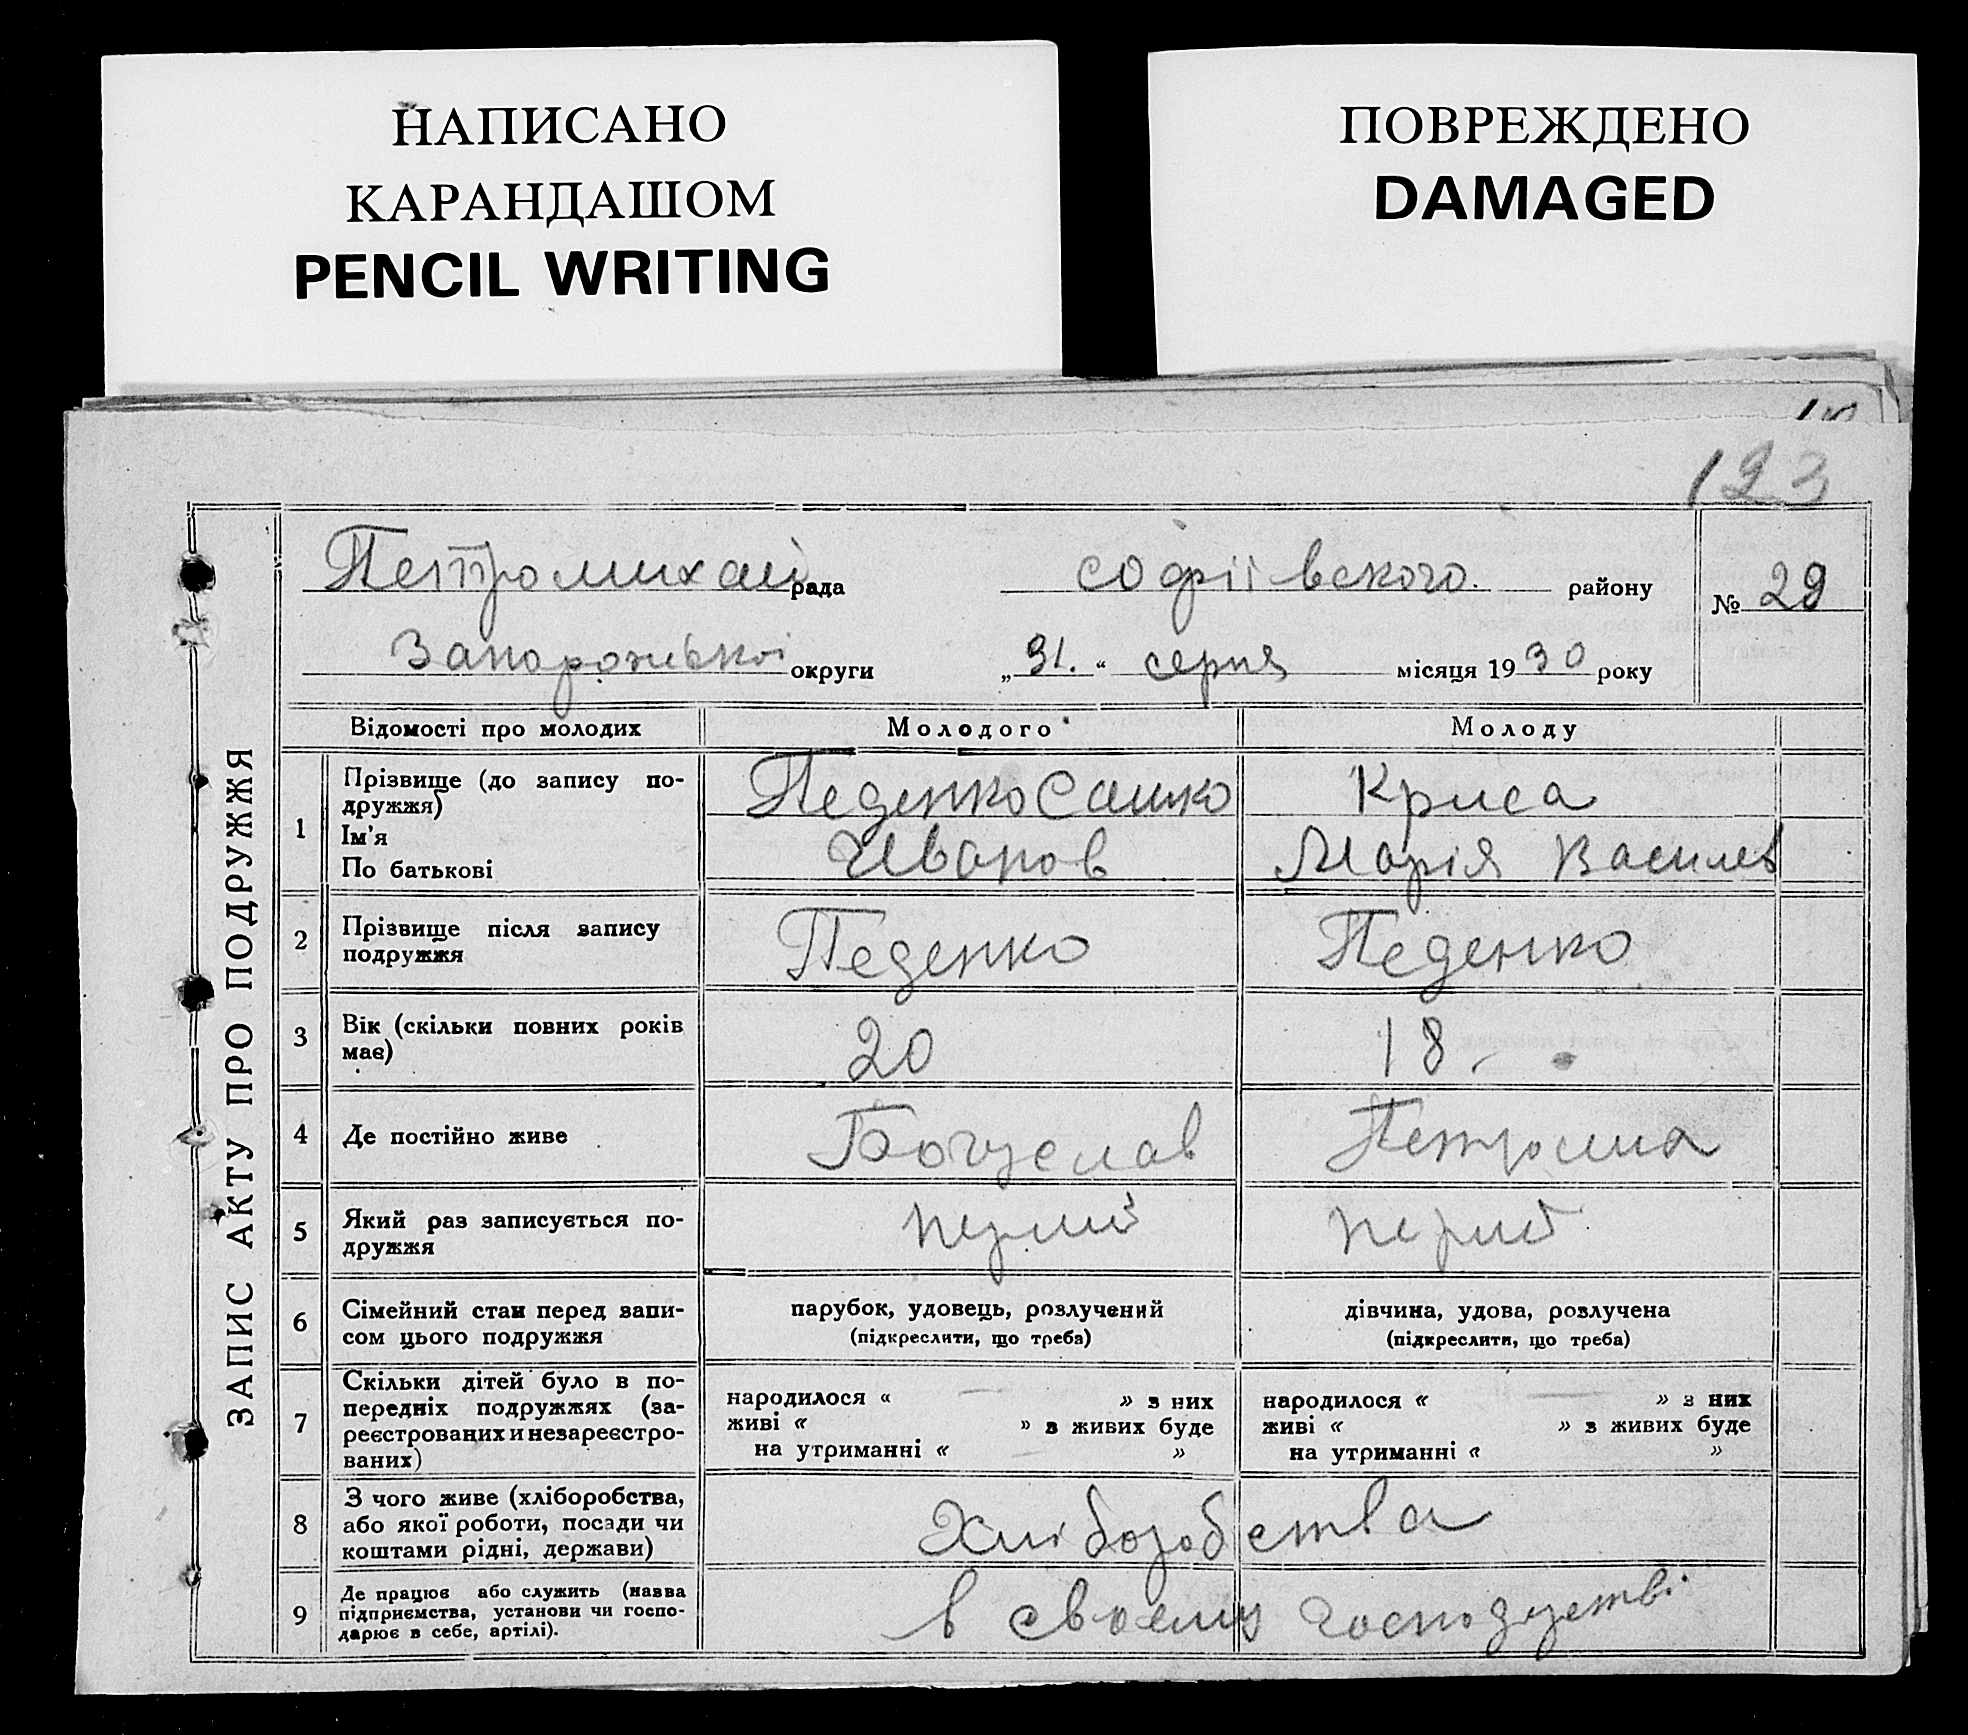 НАПИСАНО
КАРАНДАШОМ
PENCIL WRITING
ПОВРЕЖДЕНО
DAMAGED
123
ЗАПИС АКТУ ПРО ПОДРУЖЖЯ
Петромихай рада софіівского району № 29
Запорожської округи „31.“ серпя місяця 1930 року
Відомості про молодих Молодого Молоду
1 Прізвище (до запису по-
дружжя)
Ім'я
По батькові
Педенко Сашко
Иванов
Криса
Марія Василев
2 Прізвище після запису
подружжя
Педенко
Педенко
3 Вік (скільки повних років
має)
20
18
4 Де постійно живе
Богуслав
Петромих
5 Який раз записується по-
дружжя
6 Сімейний стан перед запи-
сом цього подружжя
парубок, удовець, розлучений
(підкреслити, що треба)
дівчина, удова, розлучена
(підкреслити, що треба)
7 Скільки дітей було в по-
передніх подружжях (за-
реєстрованих и незареєстро-
ваних)
народилося « — » з них
живі « » з живих буде
на утриманні « — »
народилося « — » з них
живі « » з живих буде
на утриманні « »
8 З чого живе (хліборобства,
або якої роботи, посади чи
коштами рідні, держави)
Хліборобства
9 Де працює або служить (назва
підприємства, установи чи госпо-
дарює в себе, артілі).
в своему господустві